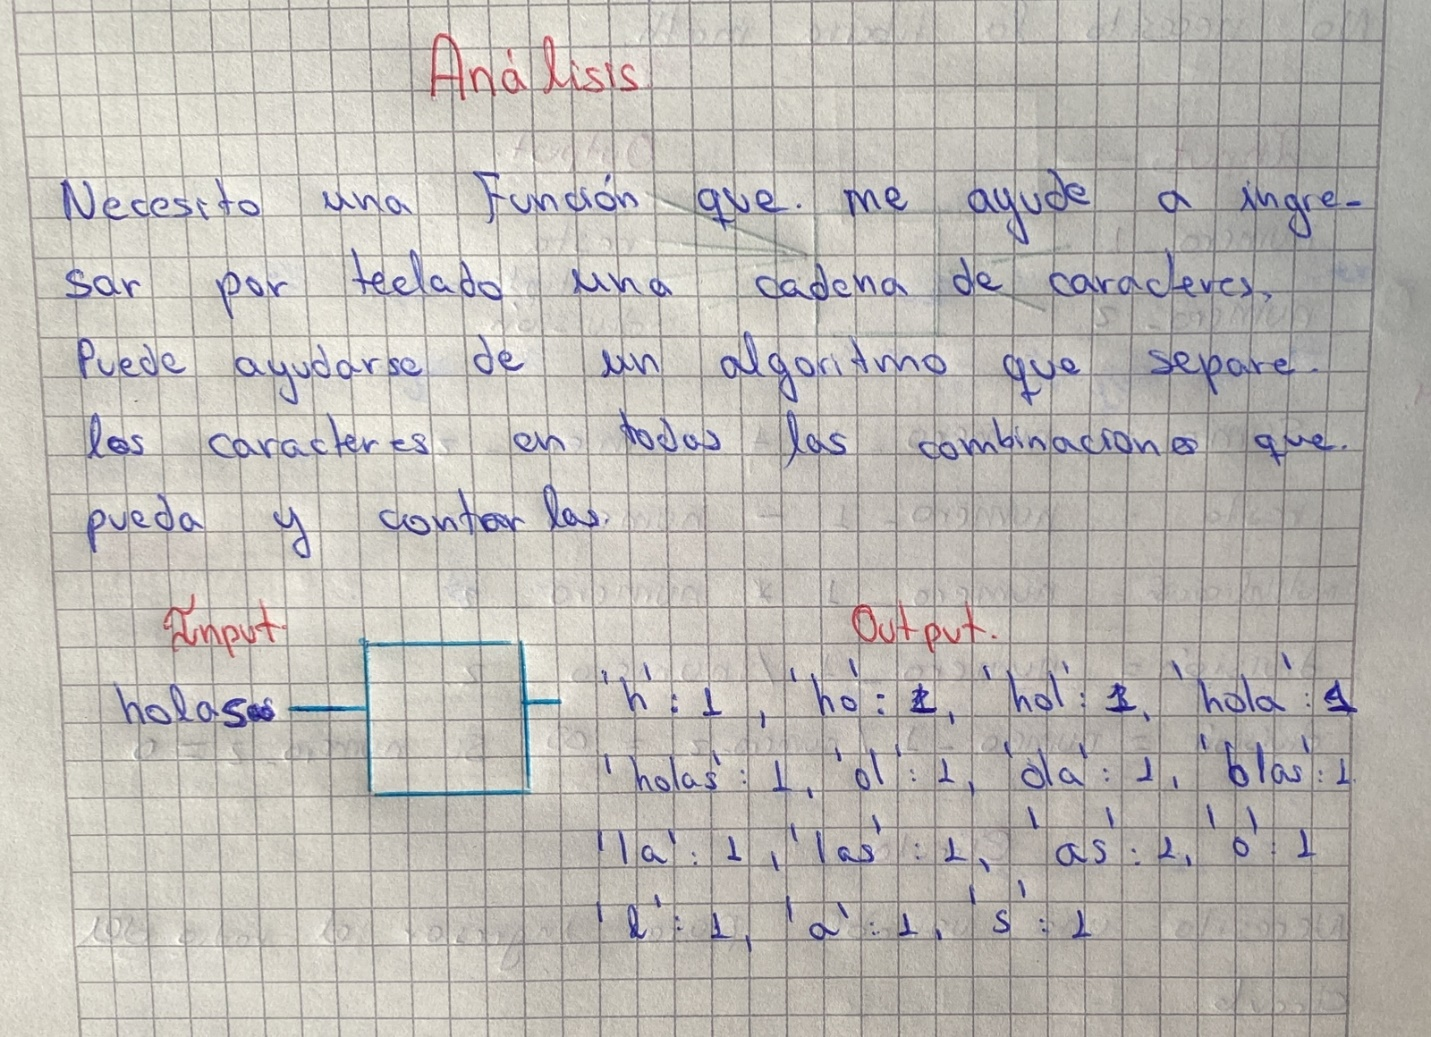 Análisis
Necesito una Función que me ayude a ingre-
sar por teclado una cadena de caracteres,
Puede ayudarse de un algoritmo que separe
los caracteres en todas las combinaciones que
pueda y contar las.
Input
Output.
holas
'h': 1, 'ho': 1, 'hol': 1, 'hola': 1
'holas': 1, 'ol': 1, 'ola': 1, 'olas': 1
'la': 1, 'las': 1, 'as': 1, 'o': 1
'l': 1, 'a': 1, 's': 1